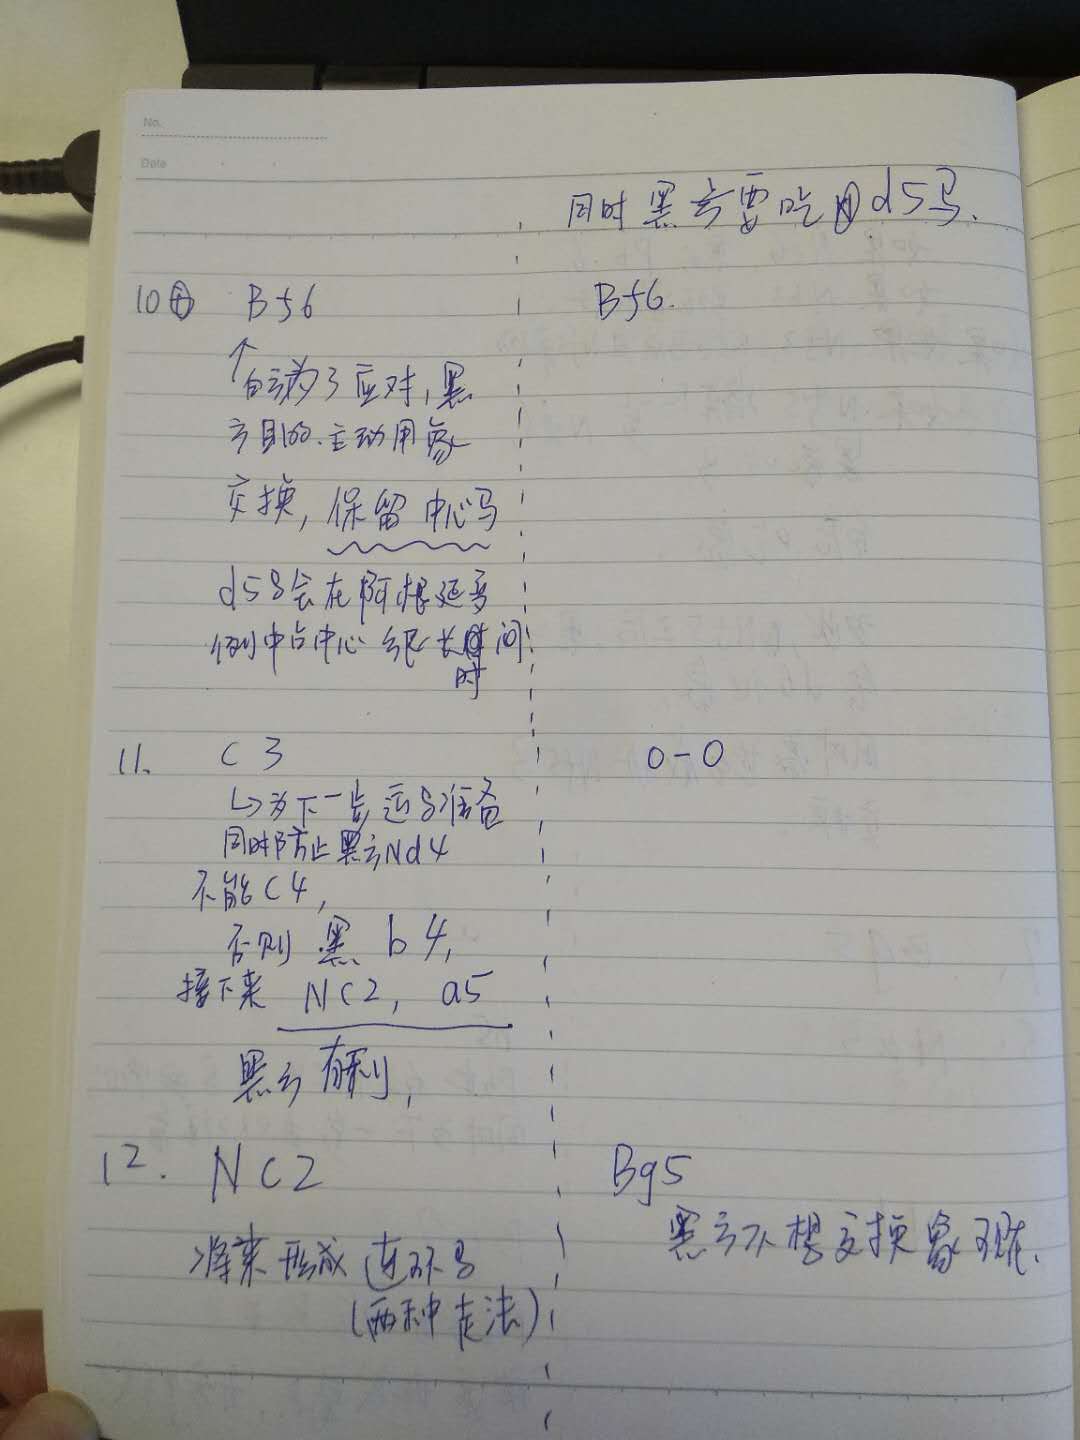 No.
Date
同时黑方要吃d5马.
10 Bf6 Bf6.
↑白方为了应对,黑
方目的.主动用象
交换,保留中心马
d5马会在阿根廷变
例中占中心很长时间
11. C3 0-0
↳为下一步运马准备
同时防止黑方Nd4
不能C4,
否则 黑 b4,
接下来 NC2, a5
黑方有利,
12. NC2 Bg5
黑方不想交换象
将来形成连环马
(两种走法)